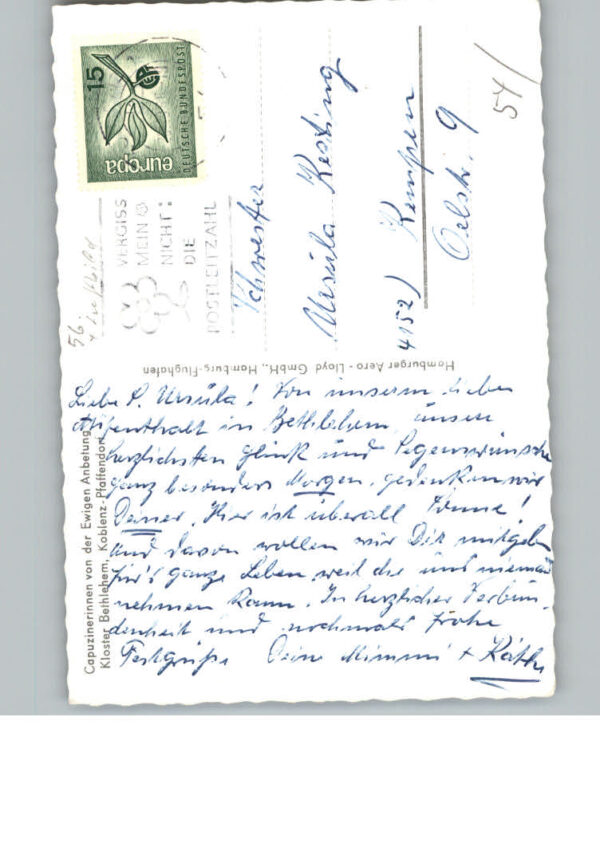 15
DEUTSCHE BUNDESPOST
europa
CEPT
VERGISS
MEIN
NICHT:
DIE
POSTLEITZAHL
54/
Schwester
Ursula Kesting
4152) Kempen
Oelstr. 9
56.
Hamburger Aero-Lloyd GmbH., Hamburg-Flughafen
Capuzinerinnen von der Ewigen Anbetung
Kloster Bethlehem, Koblenz-Pfaffendorf
Liebe S. Ursula! Von unserm lieben
Aufenthalt in Bethlehem, unsere
herzlichsten Glück und Segenswünsche
ganz besonders Morgen, gedenken wir
Deiner. Hier ist überall Sonne!
und davon wollen wir Dir mitgeben
für's ganze Leben, weil die uns niemand
nehmen kann. In herzlicher Verbun-
denheit und nochmals frohe
Festgrüße Deine Mimmi + Käthe